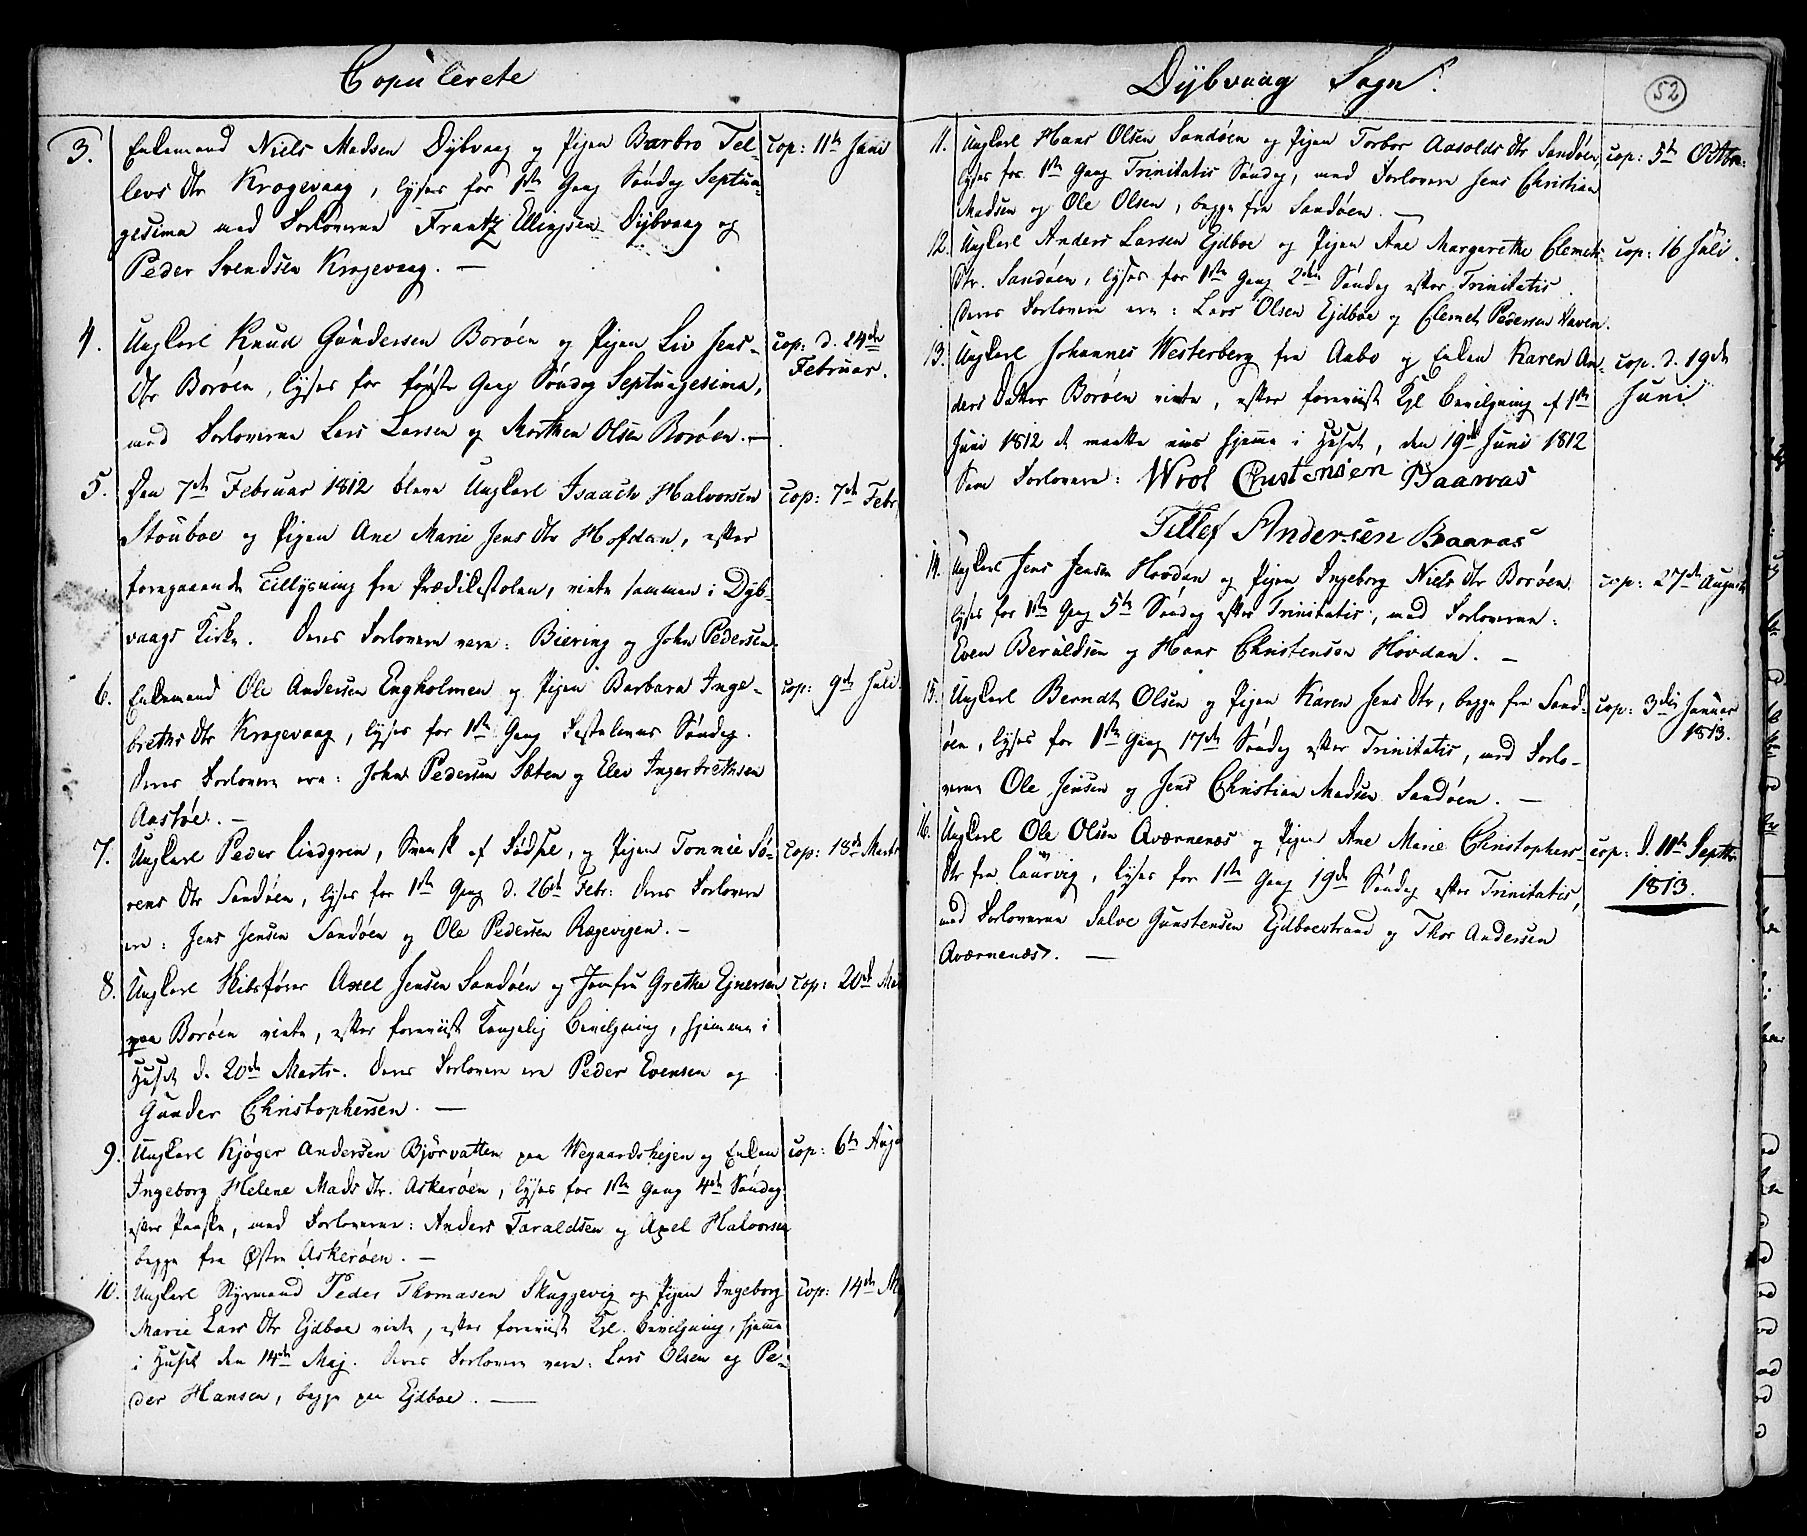 Copulerete
3. Enkemand Niels Madsen Dybvaag og Pigen Barbro Tel-
levs dtr Krogevaag, lyses for 1ste Gang Søndag Septua-
gesima med Forloverne Frantz Ellingsen Dybvaag og
Peder Svendsen Krogevaag. —
cop: 11te Juni
4. Ungkarl Knud Gundersen Borøen og Pigen Liv Jens-
dtr Borøen, lyses for første Gang Søndag Septuagesima,
med Forloverne Lars Larsen og Morthen Olsen Borøen. —
cop: d. 24de
Februar.
5. Den 7de Februar 1812 bleve Ungkarl Isaach Halvorsen
Stouboe og Pigen Ane Marie Jens dtr Hofdan, efter
foregaaende Tillysning fra Prædikestolen, viede sammen i Dyb-
vaags Kirke. Deres Forlovere vare: Biering og John Pedersen.
cop: 7de Febr.
6. Enkemand Ole Andersen Engholmen og Pigen Barbara Inge-
breths dtr Krogevaag, lyses for 1ste Gang Fastelavns Søndag.
Deres Forlovere ere: John Pedersen Sæten og Elev Ingerbrethsen
Aastøe. —
cop: 9de Juli.
7. Ungkarl Peder Lindgren, Svensk af Fødsel, og Pigen Tonnie Sø-
rens dtr Sandøen, lyses for 1ste Gang d. 26de Febr: Deres Forlovere
ere: Jens Jensen Sandøen og Ole Pedersen Rægevigen. —
cop: 18de Marts
8. Ungkarl Skibsfører Axel Jensen Sandøen og Jomfru Grethe Ejnersen
paa Borøen viede, efter foreviist Kongelig Bevilgning, hjemme i
Huset d. 20de Marts. Deres Forlovere ere Peder Evensen og
Gunder Christophersen. —
cop: 20de Mar
9. Ungkarl Kjøger Andersen Bjørvatten paa Wegaardshejen og Enken
Ingeborg Helene Mads dtr. Askerøen, lyses for 1ste Gang 4de Søndag
efter Paaske, med Forloverne: Anders Taraldsen og Axel Halvorsen
begge fra Østre Askerøen. —
cop: 6te Aug
10. Ungkarl Styrmand Peder Thomasen Skuggevig og Pigen Ingeborg
Marie Lars dtr Ejdboe viede, efter foreviist Kgl. Bevilgning, hjemme
i Huset den 14de Maj. Deres Forlovere vare: Lars Olsen og Pe-
der Hansen, begge paa Ejdboe. —
cop: 14de M
Dybvaag Sogn.
52
11. Ungkarl Hans Olsen Sandøen og Pigen Torbor Aasolds dtr Sandøen
lyses for 1ste Gang Trinitatis Søndag, med Forlovere Jens Christian
Madsen og Ole Olsen, begge fra Sandøen. —
cop: 5te Octbr:
12. Ungkarl Anders Larsen Ejdboe og Pigen Ane Margarethe Clemets-
dtr. Sandøen, lyses for 1ste Gang 2den Søndag efter Trinitatis.
Deres Forlovere ere: Lars Olsen Ejdboe og Clemet Pedersen Haven.
cop: 16 Juli.
13. Ungkarl Johannes Westerberg fra Aabo og Enken Karen An-
ders datter Borøen viede, efter foreviist Kgl Bevilgning af 1ste
Juni 1812 at maatte vies hjemme i Huset, den 19de Juni 1812
Som Forlovere: Wrol Christensen Baarvas
Tellef Andersen Baarvas
cop. d. 19de
Juni
14. Ungkarl Jens Jensen Hovdan og Pigen Ingeborg Niels dtr Borøen.
lyses for 1ste Gang 5te Søndag efter Trinitatis, med Forloverne:
Even Beruldsen og Hans Christensen Hovdan. —
cop: 27de Augusti
15. Ungkarl Berndt Olsen og Pigen Karen Jens dtr, begge fra Sand-
øen, lyses for 1ste Gang 17de Søndag efter Trinitatis, med Forlo-
verne Ole Jensen og Jens Christian Madsen Sandøen. —
cop: 3die Januar
1813.
16. Ungkarl Ole Olsen Aværnenæs og Pigen Ane Marie Christophers-
dtr fra Laurvig, lyses for 1ste Gang 19de Søndag efter Trinitatis,
med Forloverne Salve Gunstensen Ejdboestrand og Thor Andersen
Aværnenæs. —
cop: d. 11te Septbr
1813.